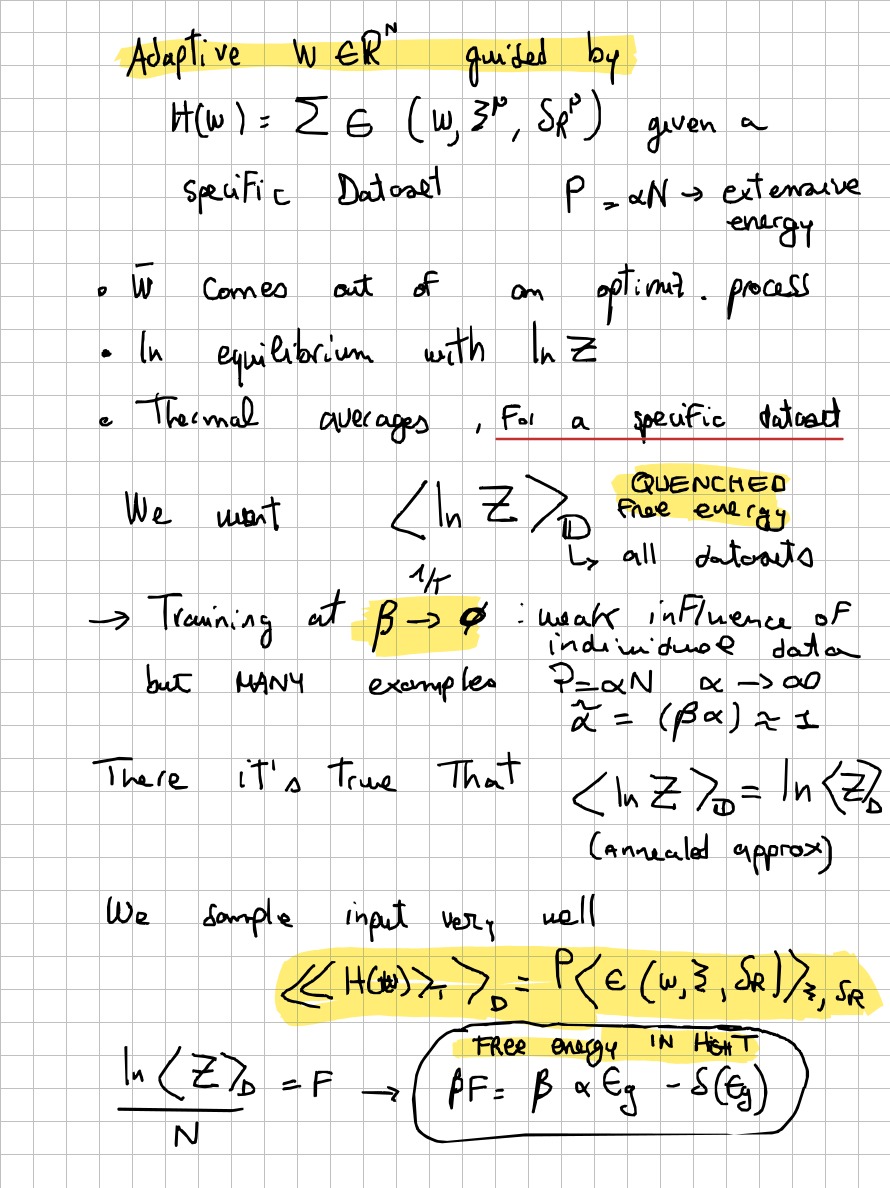 Adaptive W ∈ R^N guided by
H(w) = Σ ϵ (w, ξ^μ, S_R^μ) given a
specific Dataset P = αN → extensive
energy
• W̄ comes out of an optimiz. process
• In equilibrium with ln Z
• Thermal averages, For a specific dataset
We want <ln Z>_D QUENCHED
Free energy
↳ all datasets
1/T
→ Training at β → ϕ : weak influence of
individual data
but MANY examples P=αN α → ∞
α̃ = (βα) ≈ 1
There it's true That <ln Z>_D = ln <Z>_D
(annealed approx)
We sample input very well
<<H(w)>_T>_D = P<ϵ (w, ξ, S_R)>_ξ, S_R
FREE energy IN HIGH T
ln <Z>_D / N = F → βF = β α ϵ_g - S(ϵ_g)